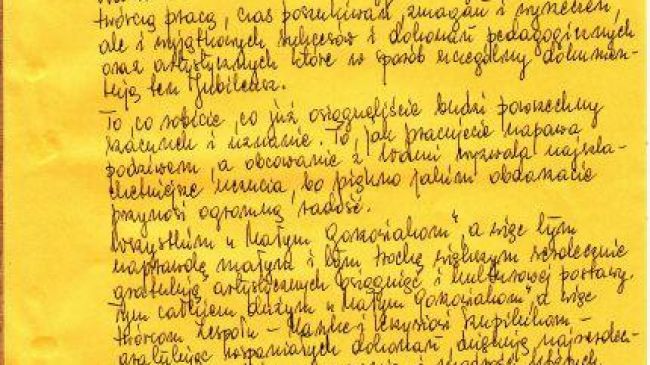 twórczą pracą, czas poszukiwań, zmagań i wyrzeczeń,
ale i wyjątkowych sukcesów i dokonań pedagogicznych
oraz artystycznych które w sposób szczególny dokumen-
tują ten Jubileusz.
To, co robicie, co już osiągnęliście budzi powszechny
szacunek i uznanie. To, jak pracujecie napawa
podziwem, a obcowanie z Wami wyzwala najszla-
chetniejsze uczucia, bo piękno jakim obdarzacie
przynosi ogromną radość.
Wszystkim „Małym Gorzowiakom", a więc tym
naprawdę małym i tym trochę większym serdecznie
gratuluję artystycznych osiągnięć i kulturowej postawy.
Tym całkiem dużym „Małym Gorzowiakom", a więc
twórcom Zespołu –
gratulując wspaniałych dokonań